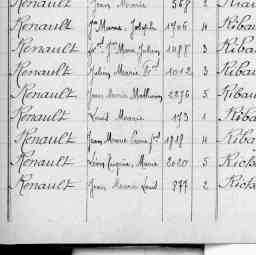 Renault Jean Marie 568 2
Renault Jn Marie Joseph 1706 4 Ribau
Renault Jn Marie Julien 1088 3 Ribau
Renault Julien Marie Fs 1012 3 Ribau
Renault Jean Marie Mathurin 2276 5 Ribau
Renault Louis Marie 173 1 Riba
Renault Jean Marie Pierre 1918 4 Riba
Renault Léon Eugène Marie 2020 5 Rich
Renault Jean Marie Louis 877 2 Rich